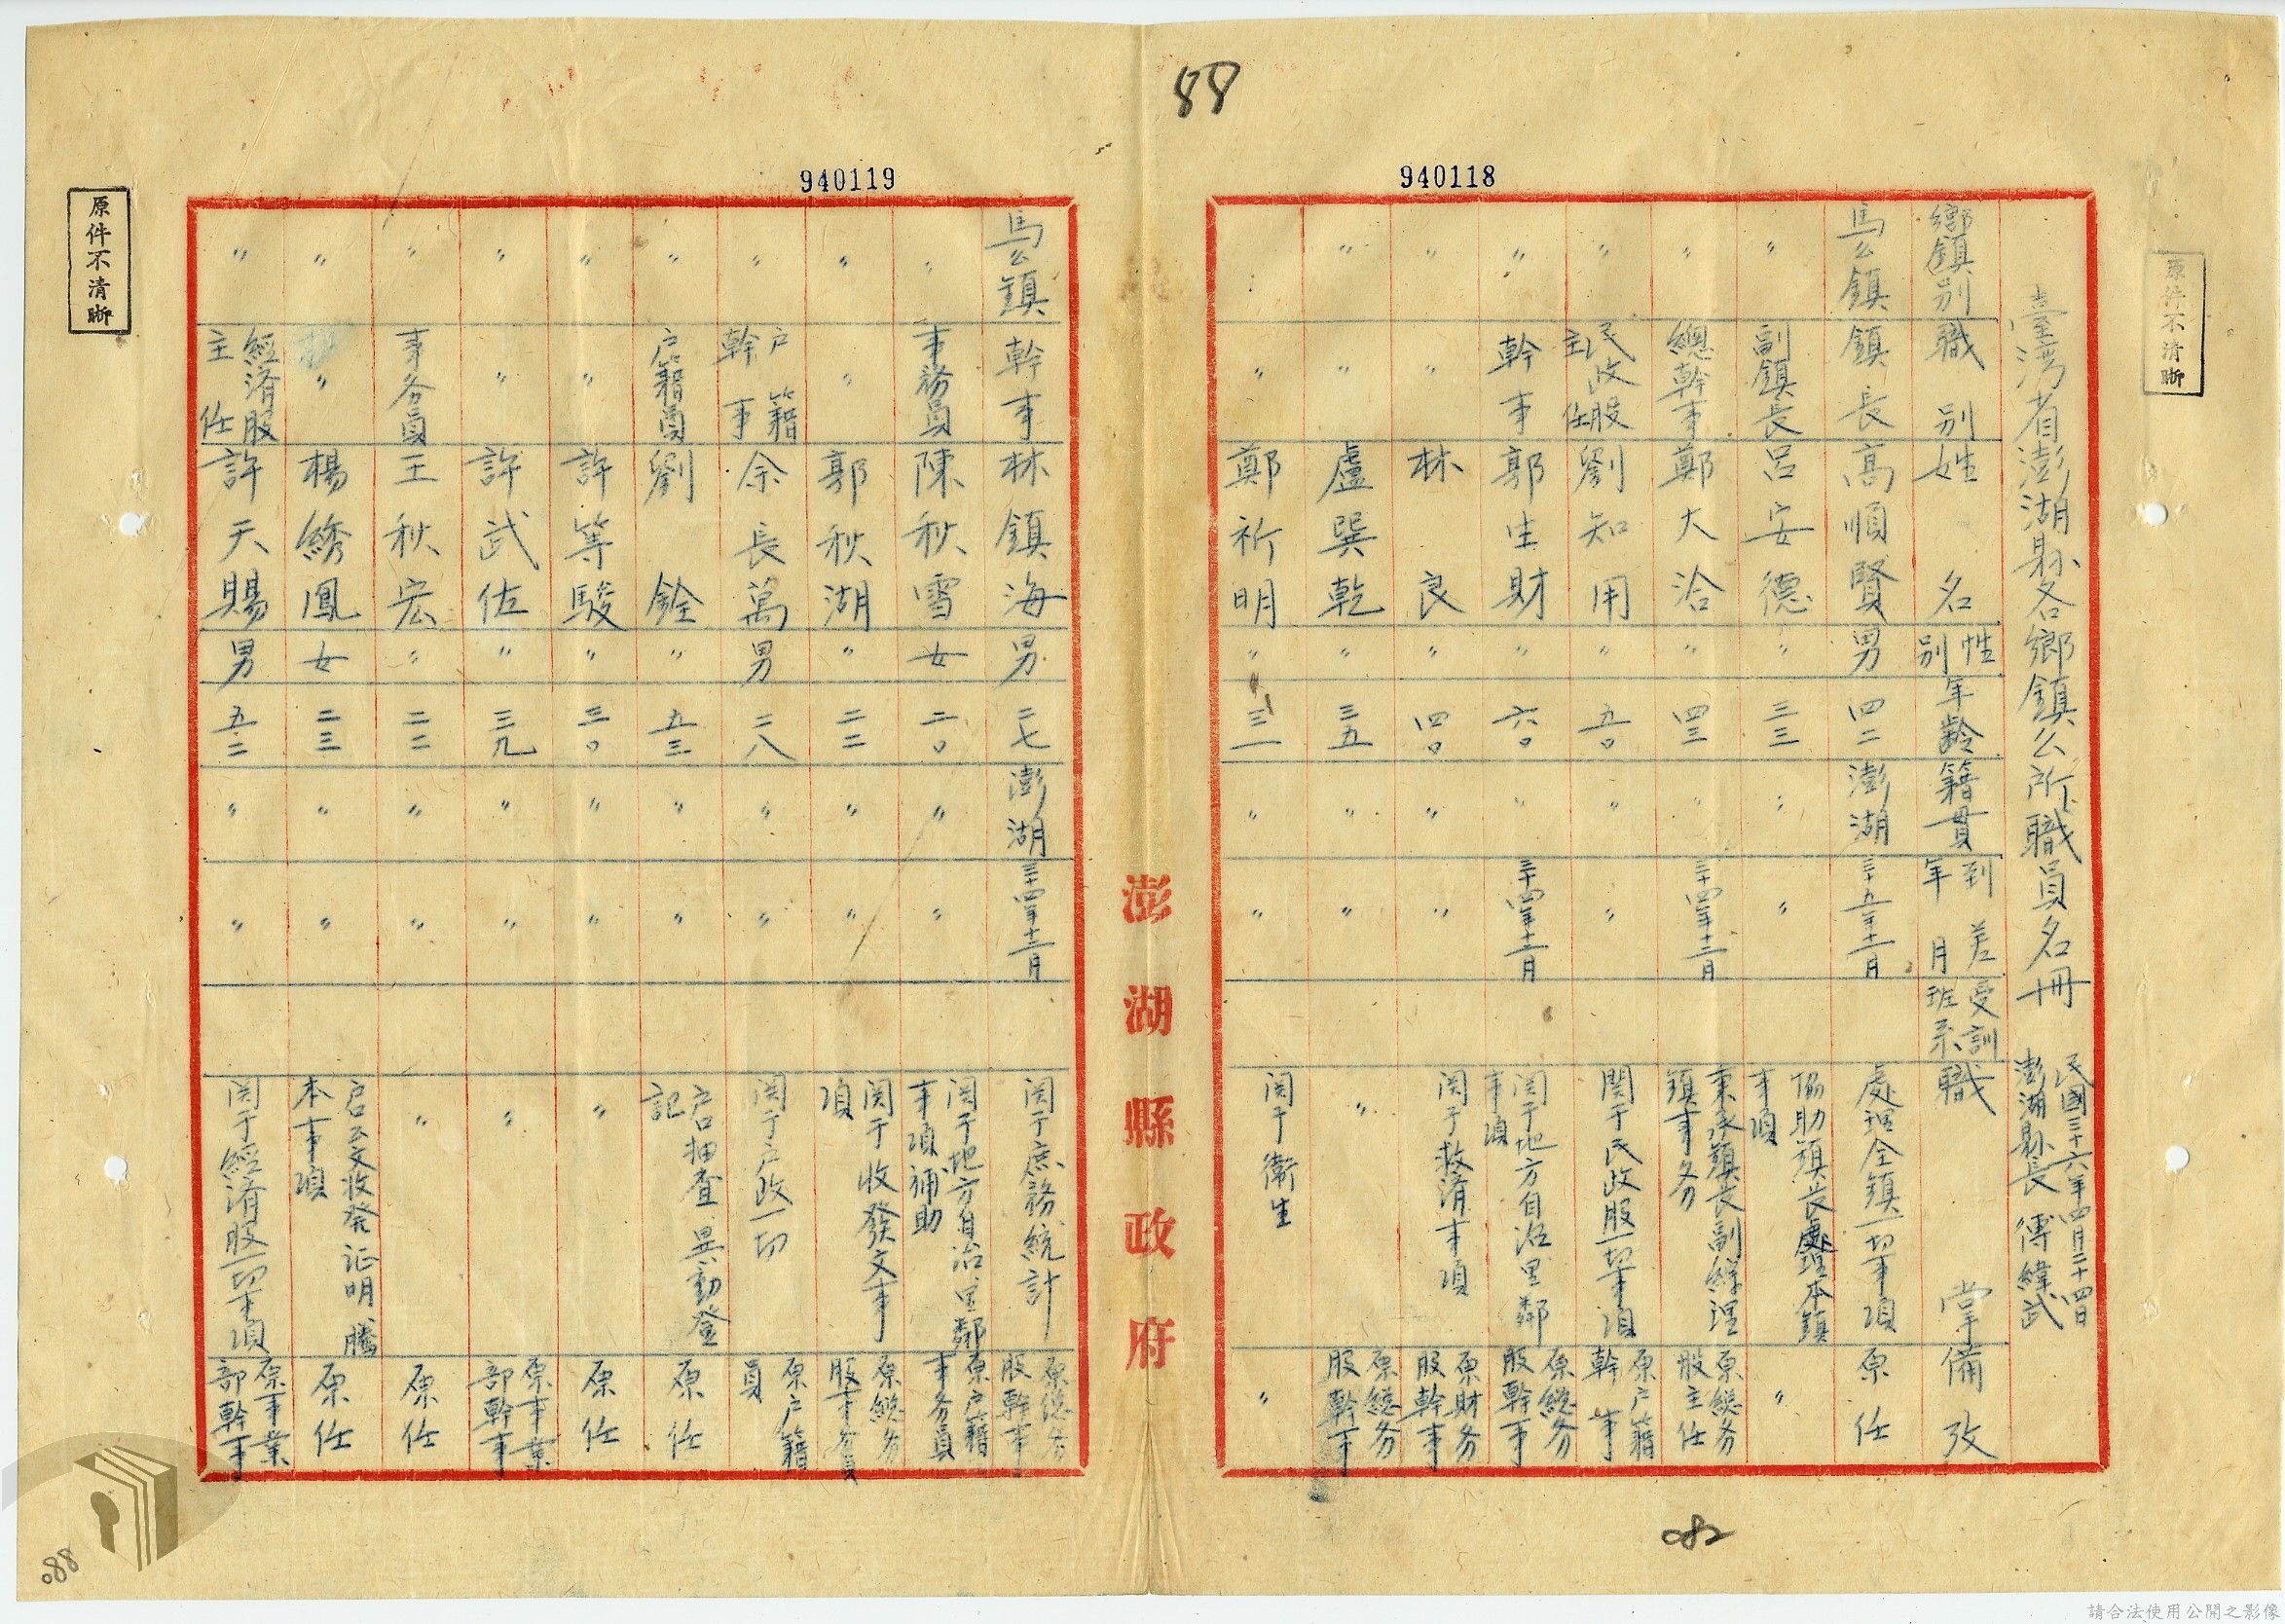 88
940118
原件不清晰
臺灣省澎湖縣各鄉鎮公所職員名冊
民國三十六年四月二十四日
澎湖縣長 傅緯武
鄉鎮別 職別 姓名 性別 年齡 籍貫 到差年月 受訓班系 職掌 備攷
馬公鎮 鎮長 高順賢 男 四二 澎湖 三十五年十一月 處理全鎮一切事項 原任
〃 副鎮長 呂安德 〃 三三 〃 〃 協助鎮長處理本鎮事項 〃
〃 總幹事 鄭大洽 〃 四三 〃 三十四年十二月 秉承鎮長副鎮長辦理鎮事务 原總务股主任
〃 民政股主任 劉知用 〃 五〇 〃 〃 関于民政股一切事項 原户籍幹事
〃 幹事 郭生財 〃 六〇 〃 三十四年十二月 関于地方自治里鄰事項 原總务股幹事
〃 〃 林良 〃 四〇 〃 〃 関于救済事項 原財务股幹事
〃 〃 盧巽乾 〃 三五 〃 〃 〃 原總务股幹事
〃 鄭祈明 〃 三一 〃 〃 関于衛生 〃
082
澎湖縣政府
940119
馬公鎮 幹事 林鎮海 男 二七 澎湖 三十四年十二月 関于庶務統計 原總务股幹事
〃 事務員 陳秋雪 女 二〇 〃 〃 関于地方自治里鄰事項補助 原户籍事务員
〃 〃 郭秋湖 〃 二二 〃 〃 関于收發文事項 原總务股事务員
〃 户籍幹事 余長萬 男 二八 〃 〃 関于户政一切 原户籍員
〃 户籍員 劉銓 〃 五三 〃 〃 户口抽查異動登記 原任
〃 〃 許等駿 〃 三〇 〃 〃 〃 原任
〃 〃 許武佐 〃 三九 〃 〃 〃 原事業部幹事
〃 事务員 王秋宏 〃 二二 〃 〃 〃 原任
〃 〃 楊綉鳳 女 二三 〃 〃 户口公文收発证明謄本事項 原任
〃 經済股主任 許天賜 男 五二 〃 〃 関于經済股一切事項 原事業部幹事
原件不清晰
088
請合法使用公開之影像